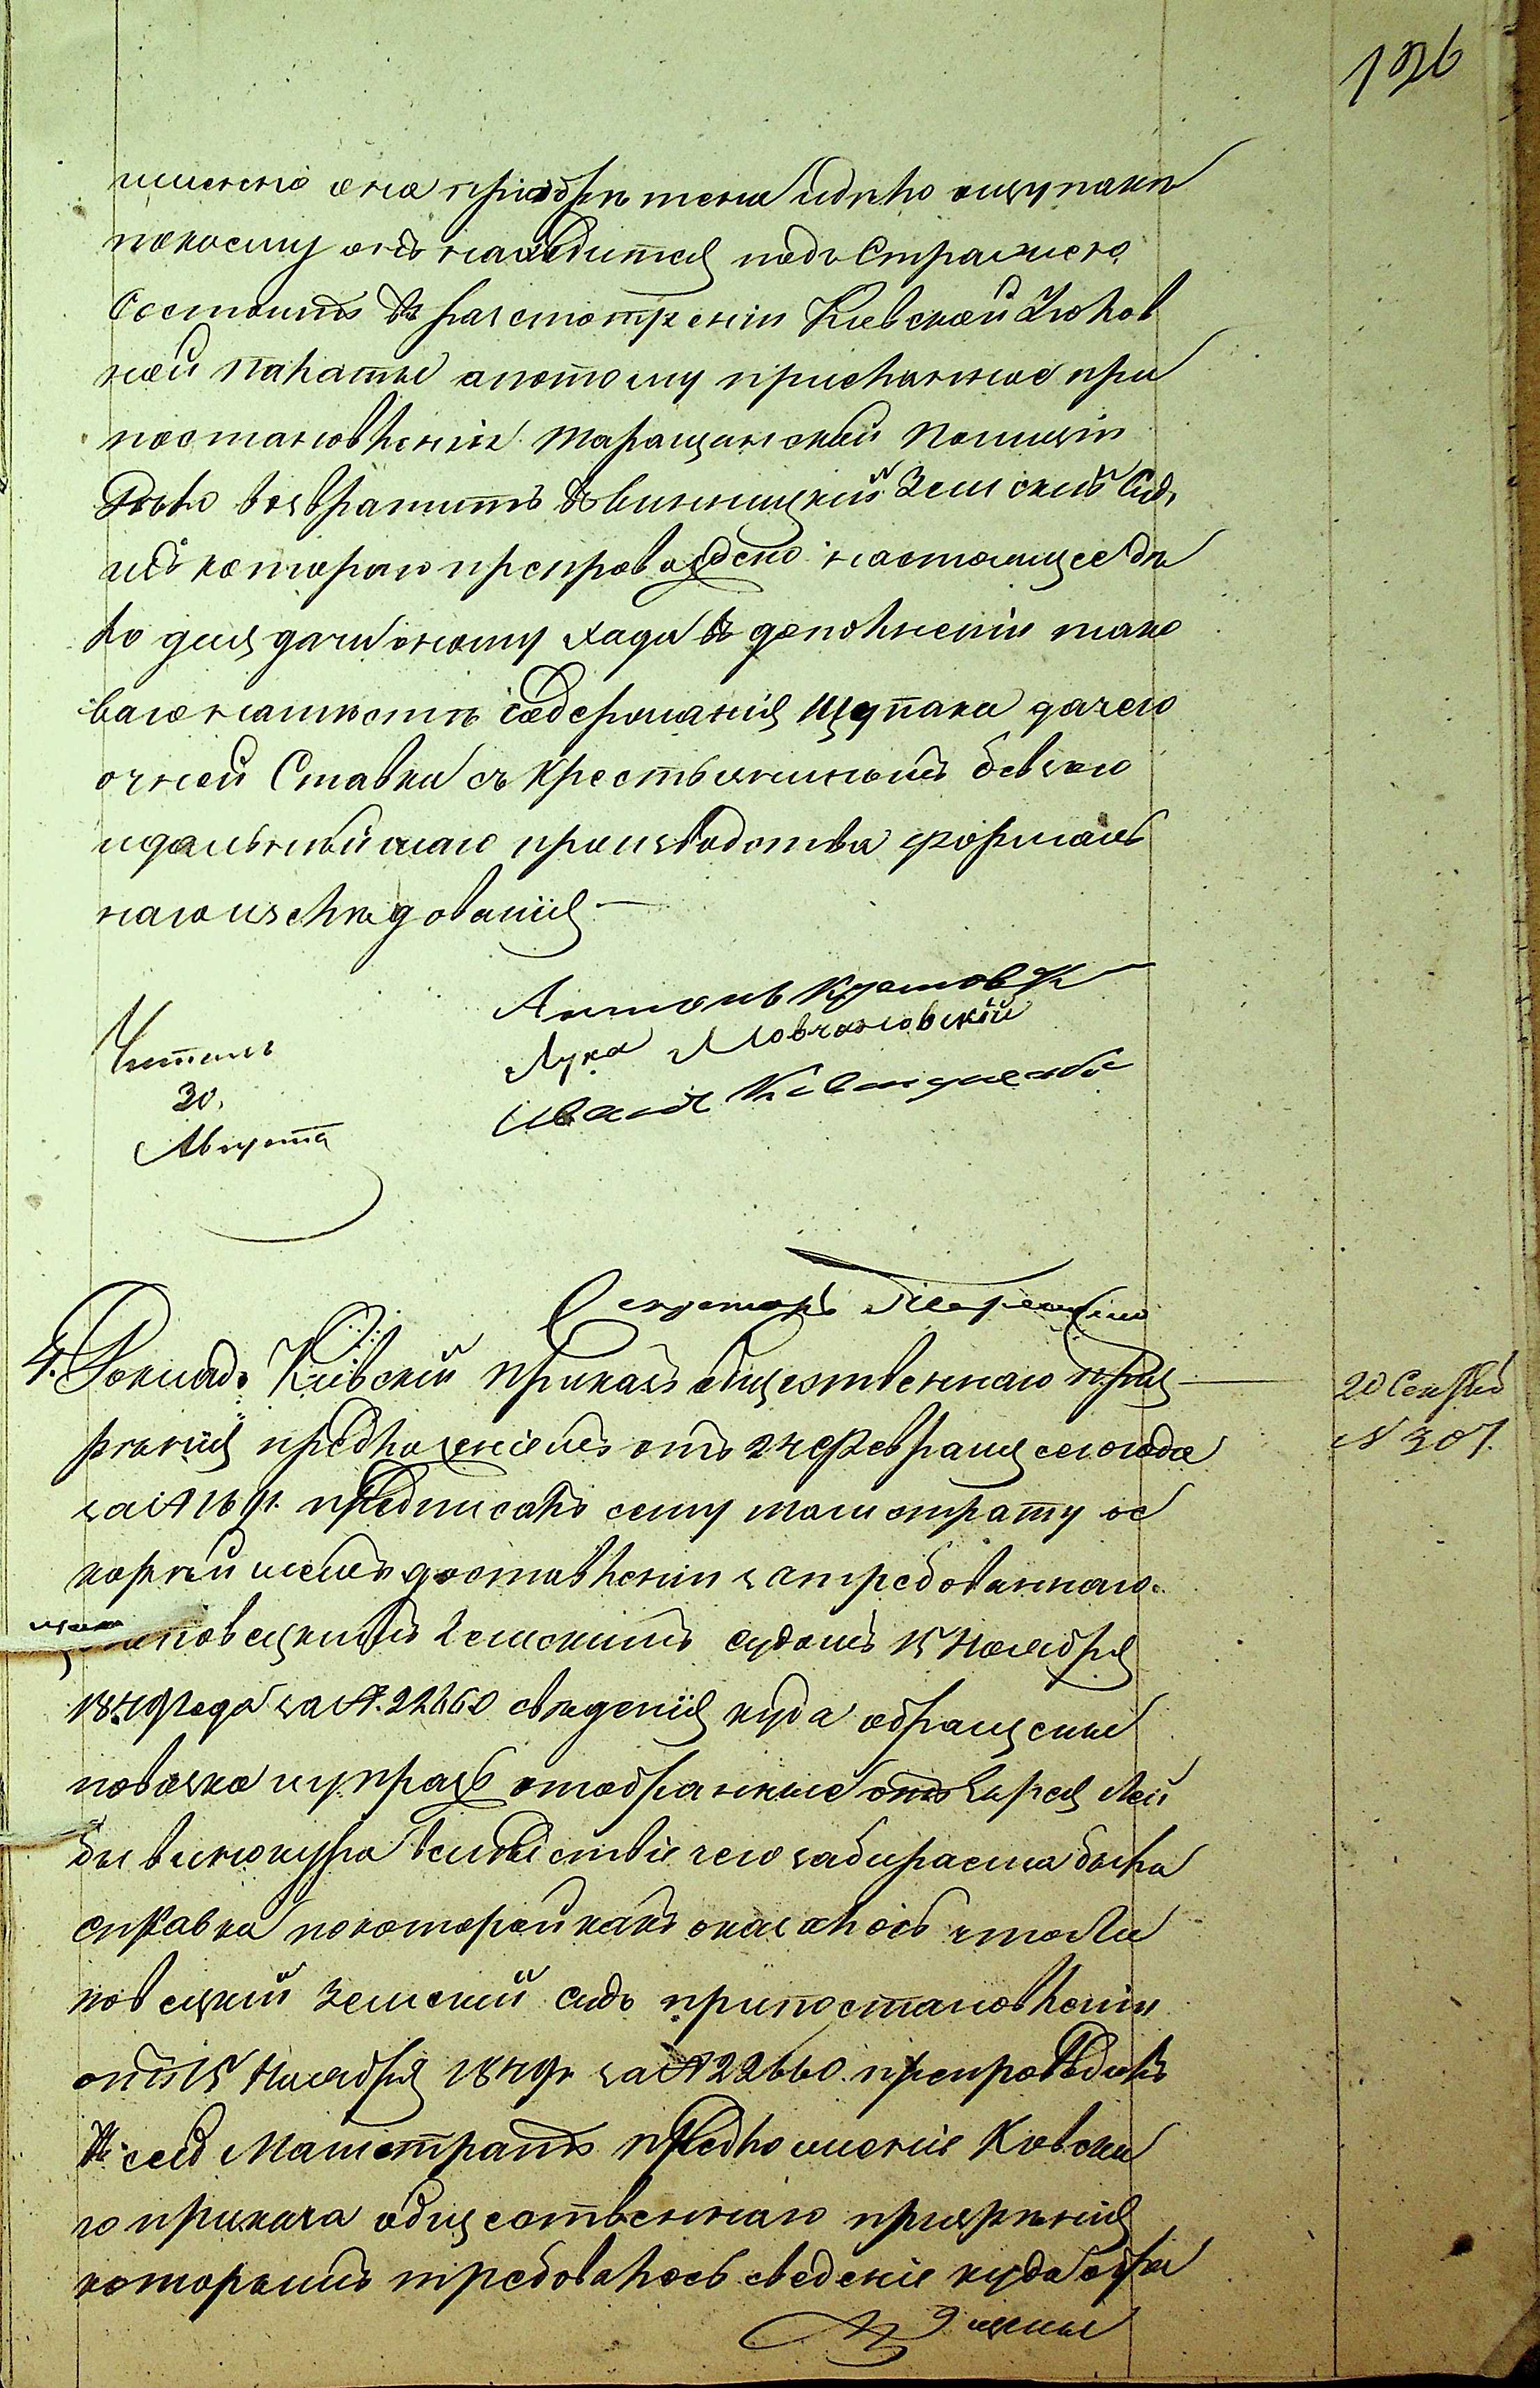 126
именно она приобретена идело ощупаке
покоему онъ находится подъ Стражею
состоитъ въ разсмотреніи Кіевской Уголов
ной Палаты апотому присланное при
постановленіи Таращанской Полиціи
Дѣло возвратить въ Винницкій Земскій Судъ
изъ котораго препровождено настоящее дѣ
ло для дачи оному хода въ дополненіи тако
ваго насчетъ содержанія Щупака дачею
очной Ставки съ крестьяниномъ
идальнѣйшаго производства формаль
наго изслѣдованія
Читалъ
30.
Августа
Антонъ
Лука Мовчановскій
Иванъ
Секретарь
4. Докладъ. Кіевскій приказъ общественнаго приз
рѣнія предложеніемъ отъ 24 февраля сего года
за № предписалъ сему магистрату ос
корѣйшемъ доставленіи затребованнаго
Липовецкимъ Земскимъ судомъ 15 Ноября
1849 года за №. 22660 свѣденія куда обращены
повозка иупряжъ отобранные отъ Еврея Лей
бы Винокура вслѣдствіе чего забираема была
справка покоторой какъ оказалось что Ли
повецкій Земскій судъ припостановленіи
отъ 15 Ноября 1849 г. за № 22660. препроводилъ
въ сей Магистратъ предложеніе Кіевска
го приказа общественнаго призрѣнія
которымъ требовалось сведеніе куда обра
щены
20 Сентбр
№ 307.